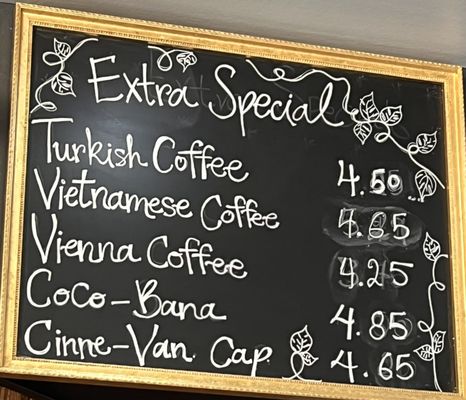 Extra Special
Turkish Coffee 4.50
Vietnamese Coffee 4.65
Vienna Coffee 4.25
Coco-Bana 4.85
Cinne-Van. Cap. 4.65